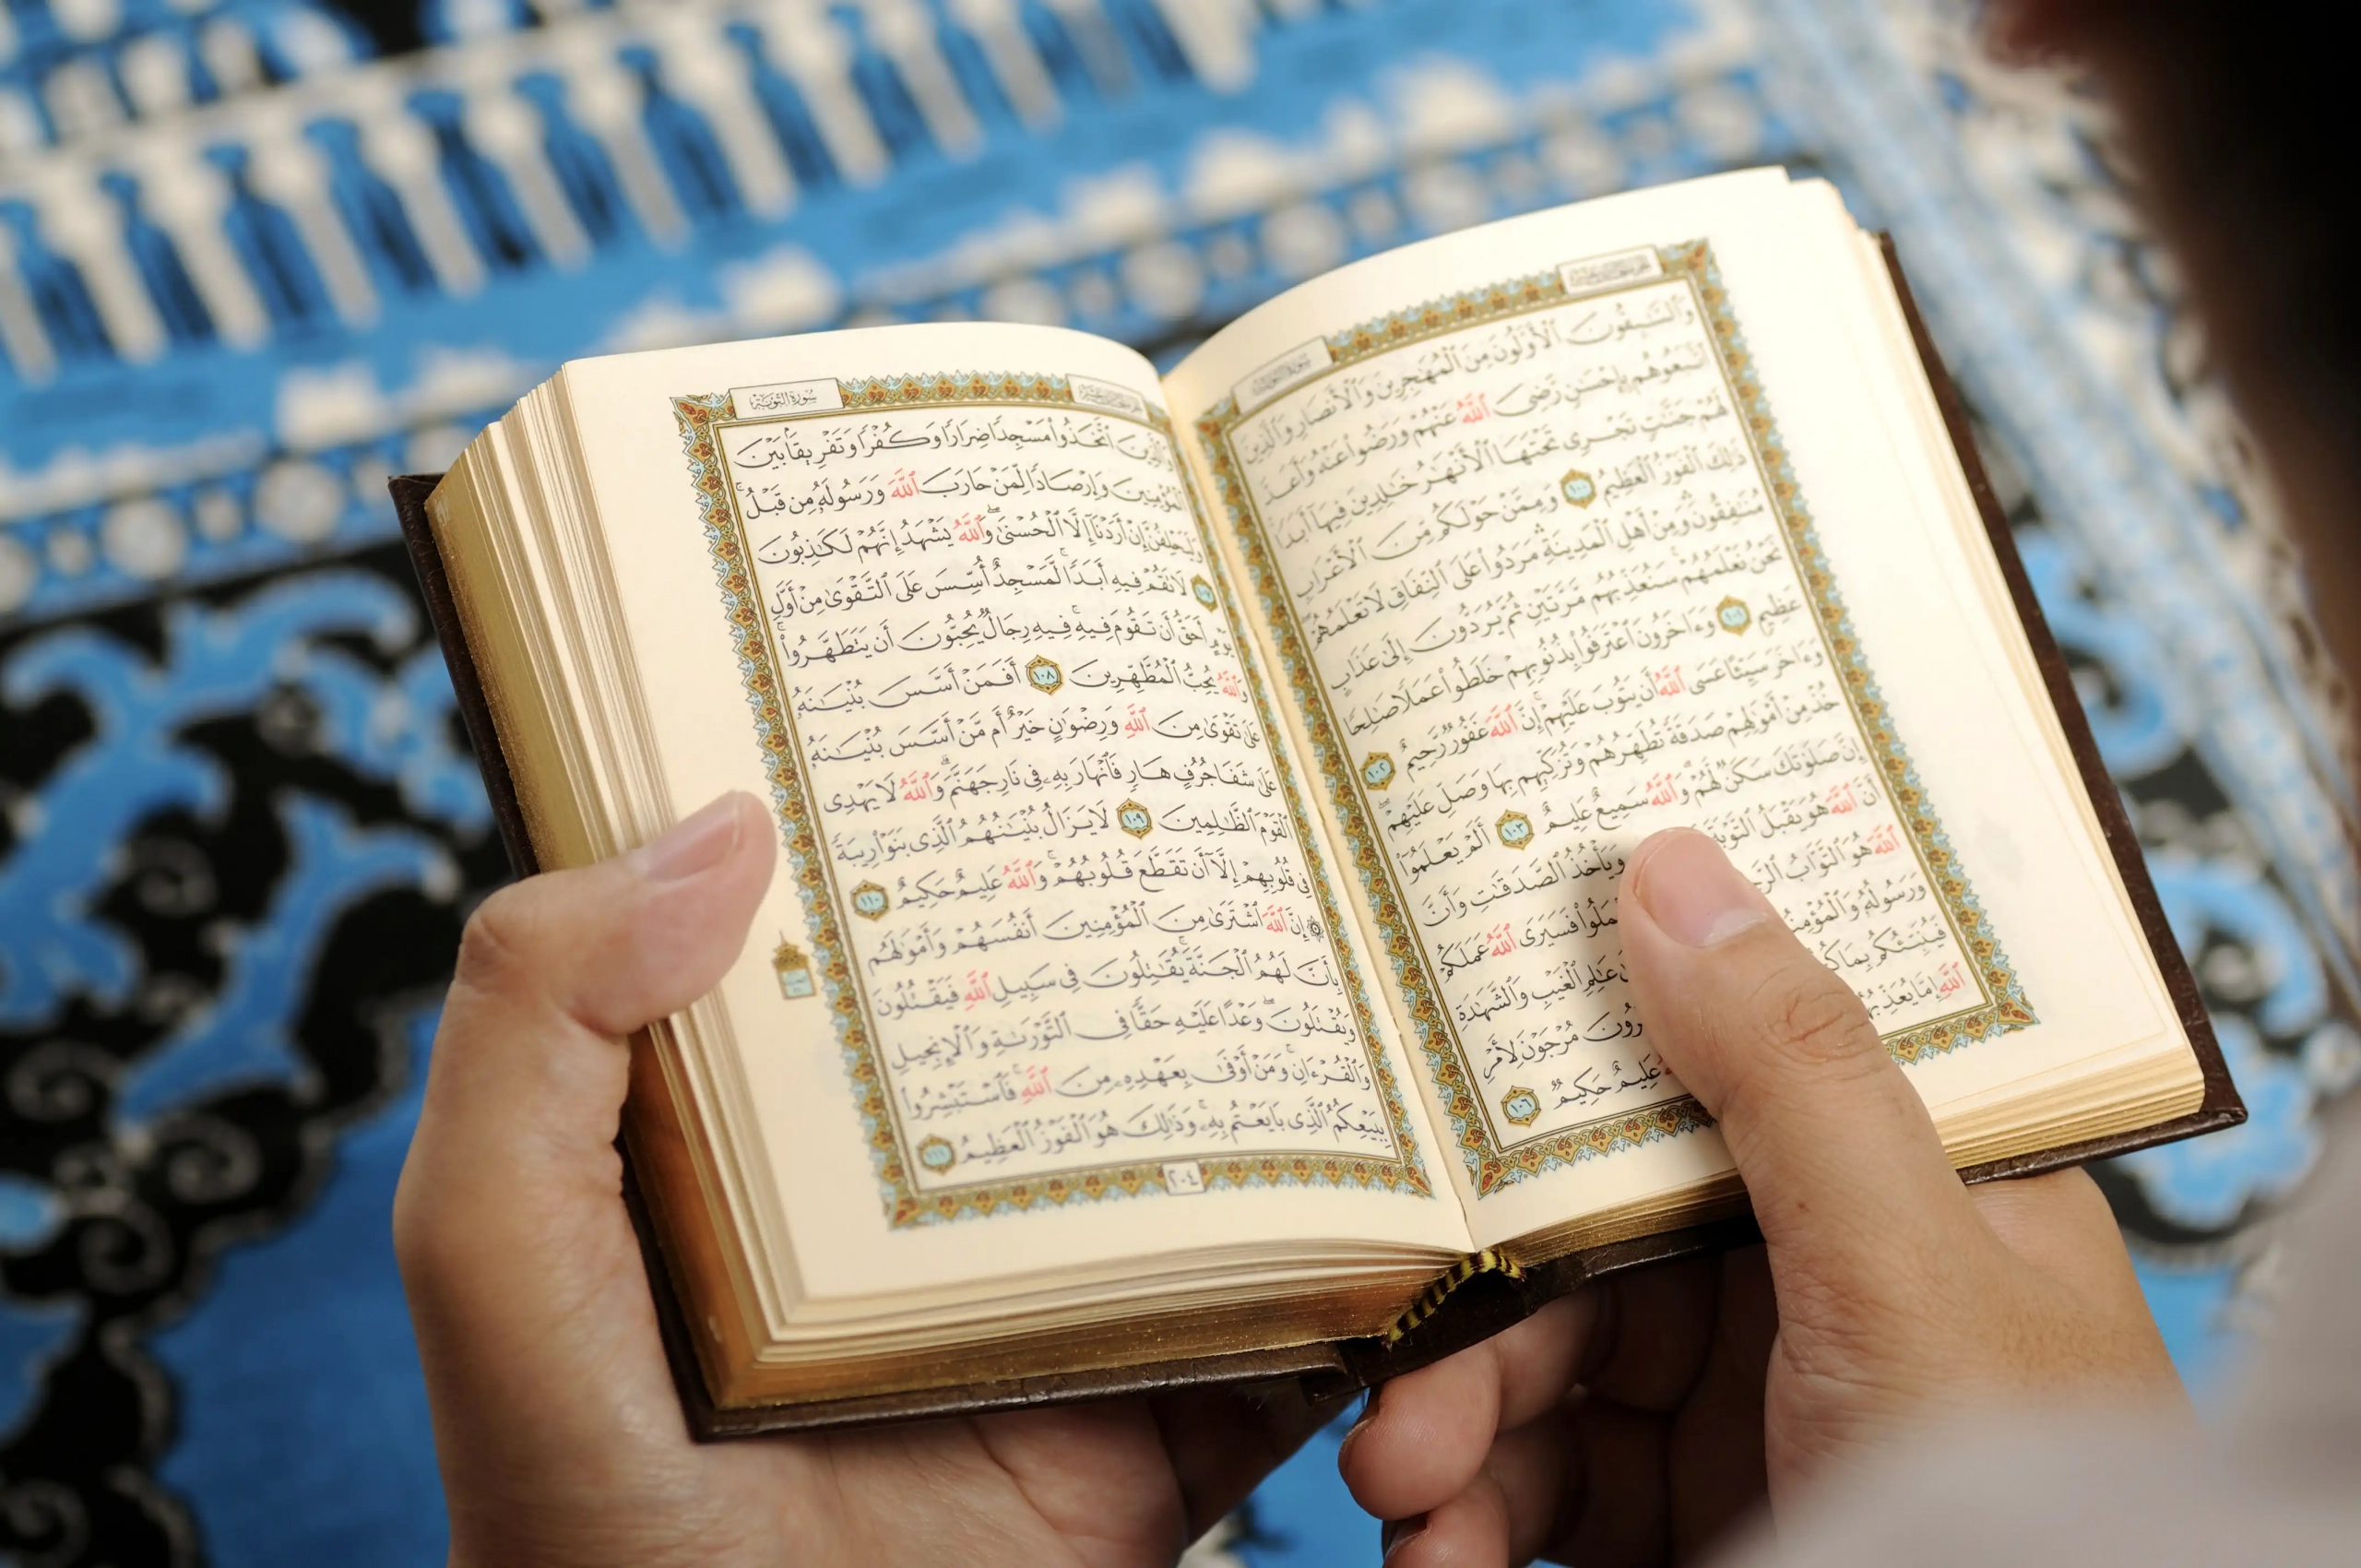 وَالسَّـٰبِقُونَ الْأَوَّلُونَ مِنَ الْمُهَـٰجِرِينَ وَالْأَنصَارِ وَالَّذِينَ
اتَّبَعُوهُم بِإِحْسَـٰنٍ رَّضِيَ اللَّهُ عَنْهُمْ وَرَضُوا عَنْهُ وَأَعَدَّ
لَهُمْ جَنَّـٰتٍ تَجْرِي تَحْتَهَا الْأَنْهَـٰرُ خَـٰلِدِينَ فِيهَا أَبَدًا
ذَٰلِكَ الْفَوْزُ الْعَظِيمُ ١٠٠ وَمِمَّنْ حَوْلَكُم مِّنَ الْأَعْرَابِ
مُنَـٰفِقُونَ وَمِنْ أَهْلِ الْمَدِينَةِ مَرَدُوا عَلَى النِّفَاقِ لَا تَعْلَمُهُمْ
نَحْنُ نَعْلَمُهُمْ سَنُعَذِّبُهُم مَّرَّتَيْنِ ثُمَّ يُرَدُّونَ إِلَىٰ عَذَابٍ
عَظِيمٍ ١٠١ وَءَاخَرُونَ اعْتَرَفُوا بِذُنُوبِهِمْ خَلَطُوا عَمَلًا صَـٰلِحًا
وَءَاخَرَ سَيِّئًا عَسَى اللَّهُ أَن يَتُوبَ عَلَيْهِمْ إِنَّ اللَّهَ غَفُورٌ رَّحِيمٌ ١٠٢
خُذْ مِنْ أَمْوَٰلِهِمْ صَدَقَةً تُطَهِّرُهُمْ وَتُزَكِّيهِم بِهَا وَصَلِّ عَلَيْهِمْ
إِنَّ صَلَوٰتَكَ سَكَنٌ لَّهُمْ وَاللَّهُ سَمِيعٌ عَلِيمٌ ١٠٣ أَلَمْ يَعْلَمُوا
أَنَّ اللَّهَ هُوَ يَقْبَلُ التَّوْبَةَ وَيَأْخُذُ الصَّدَقَـٰتِ وَأَنَّ
اللَّهَ هُوَ التَّوَّابُ فَسَيَرَى اللَّهُ عَمَلَكُمْ
وَرَسُولُهُ وَالْمُؤْمِنُ عَـٰلِمِ الْغَيْبِ وَالشَّهَـٰدَةِ
فَيُنَبِّئُكُم بِمَا مُرْجَوْنَ لِأَمْرِ
اللَّهِ إِمَّا يُعَذِّبُهُمْ عَلِيمٌ حَكِيمٌ ١٠٦
سُورَةُ التَّوْبَةِ
وَالَّذِينَ اتَّخَذُوا مَسْجِدًا ضِرَارًا وَكُفْرًا وَتَفْرِيقًا بَيْنَ
الْمُؤْمِنِينَ وَإِرْصَادًا لِّمَنْ حَارَبَ اللَّهَ وَرَسُولَهُ مِن قَبْلُ
وَلَيَحْلِفُنَّ إِنْ أَرَدْنَا إِلَّا الْحُسْنَىٰ وَاللَّهُ يَشْهَدُ إِنَّهُمْ لَكَـٰذِبُونَ
١٠٧ لَا تَقُمْ فِيهِ أَبَدًا لَّمَسْجِدٌ أُسِّسَ عَلَى التَّقْوَىٰ مِنْ أَوَّلِ
يَوْمٍ أَحَقُّ أَن تَقُومَ فِيهِ فِيهِ رِجَالٌ يُحِبُّونَ أَن يَتَطَهَّرُوا
وَاللَّهُ يُحِبُّ الْمُطَّهِّرِينَ ١٠٨ أَفَمَنْ أَسَّسَ بُنْيَـٰنَهُ
عَلَىٰ تَقْوَىٰ مِنَ اللَّهِ وَرِضْوَٰنٍ خَيْرٌ أَم مَّنْ أَسَّسَ بُنْيَـٰنَهُ
عَلَىٰ شَفَا جُرُفٍ هَارٍ فَانْهَارَ بِهِ فِي نَارِ جَهَنَّمَ وَاللَّهُ لَا يَهْدِي
الْقَوْمَ الظَّـٰلِمِينَ ١٠٩ لَا يَزَالُ بُنْيَـٰنُهُمُ الَّذِي بَنَوْا رِيبَةً
فِي قُلُوبِهِمْ إِلَّا أَن تَقَطَّعَ قُلُوبُهُمْ وَاللَّهُ عَلِيمٌ حَكِيمٌ ١١٠
۞ إِنَّ اللَّهَ اشْتَرَىٰ مِنَ الْمُؤْمِنِينَ أَنفُسَهُمْ وَأَمْوَٰلَهُم
بِأَنَّ لَهُمُ الْجَنَّةَ يُقَـٰتِلُونَ فِي سَبِيلِ اللَّهِ فَيَقْتُلُونَ
وَيُقْتَلُونَ وَعْدًا عَلَيْهِ حَقًّا فِي التَّوْرَىٰةِ وَالْإِنجِيلِ
وَالْقُرْءَانِ وَمَنْ أَوْفَىٰ بِعَهْدِهِ مِنَ اللَّهِ فَاسْتَبْشِرُوا
بِبَيْعِكُمُ الَّذِي بَايَعْتُم بِهِ وَذَٰلِكَ هُوَ الْفَوْزُ الْعَظِيمُ ١١١
٢٠٤